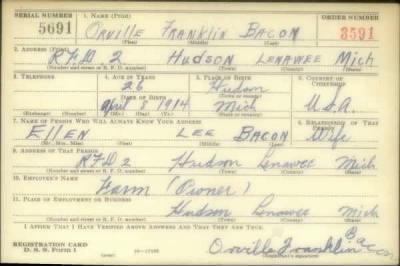 SERIAL NUMBER 1. NAME (Print) ORDER NUMBER
5691 ORVILLE FRANKLIN BACON 3591
(First) (Middle) (Last)
2. ADDRESS (Print)
RFD. 2 HUDSON LENAWEE MICH
(Number and street or R. F. D. number) (Town) (County) (State)
3. TELEPHONE 4. AGE IN YEARS 5. PLACE OF BIRTH 6. COUNTRY OF CITIZENSHIP
26 Hudson
DATE OF BIRTH (Town or county)
April 8 1914 Mich U.S.A.
(Exchange) (Number) (Mo.) (Day) (Yr.) (State or country)
7. NAME OF PERSON WHO WILL ALWAYS KNOW YOUR ADDRESS 8. RELATIONSHIP OF THAT PERSON
ELLEN LEE BACON Wife
(Mr., Mrs., Miss) (First) (Middle) (Last)
9. ADDRESS OF THAT PERSON
RFD 2 Hudson Lenawee Mich
(Number and street or R. F. D. number) (Town) (County) (State)
10. EMPLOYER'S NAME
Farm (Owner)
11. PLACE OF EMPLOYMENT OR BUSINESS
Hudson Lenawee Mich
(Number and street or R. F. D. number) (Town) (County) (State)
I AFFIRM THAT I HAVE VERIFIED ABOVE ANSWERS AND THAT THEY ARE TRUE.
REGISTRATION CARD
D. S. S. Form 1 Orville Franklin Bacon
(Registrant's signature)